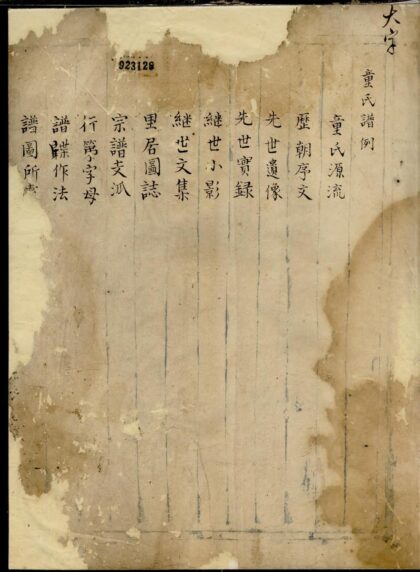 大字
923128
童氏譜例
童氏源流
歷朝序文
先世遺像
先世實録
継世小影
継世文集
里居圖誌
宗譜支派
行第字母
譜牒作法
譜圖所